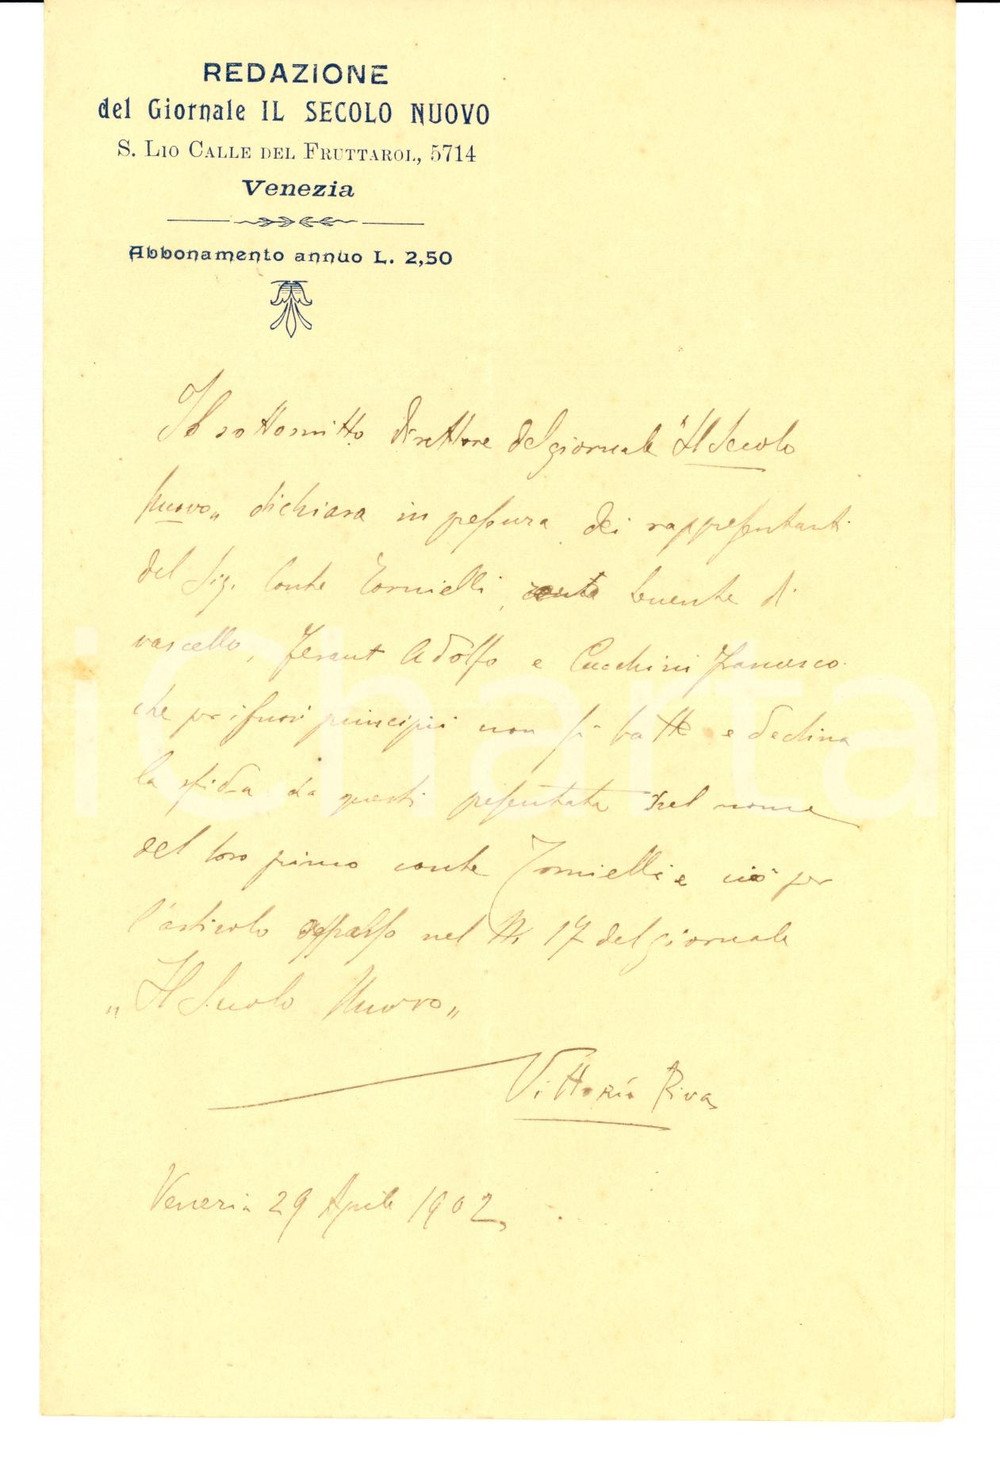 REDAZIONE
del Giornale IL SECOLO NUOVO
S. LIO CALLE DEL FRUTTAROL, 5714
Venezia
Abbonamento annuo L. 2,50
Il sottoscritto direttore del giornale "Il Secolo
Nuovo" dichiara in presenza dei rappresentanti
del Sig. Conte Tornielli, tenente di
vascello, Feraut Adolfo e Cucchini Francesco
che per i suoi principii non si batte e declina
la sfida da questi presentata nel nome
del loro primo conte Tornielli e ciò per
l'articolo apparso nel N. 17 del giornale
"Il Secolo Nuovo"
Vittorio Riva
Venezia 29 Aprile 1902
iCharta